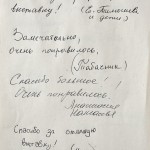 выставку! (С. Тимошева
и дети)
Замечательно,
очень понравилось.
(Табастик)
Спасибо большое!
Очень понравилось
Спасибо за
выставку!